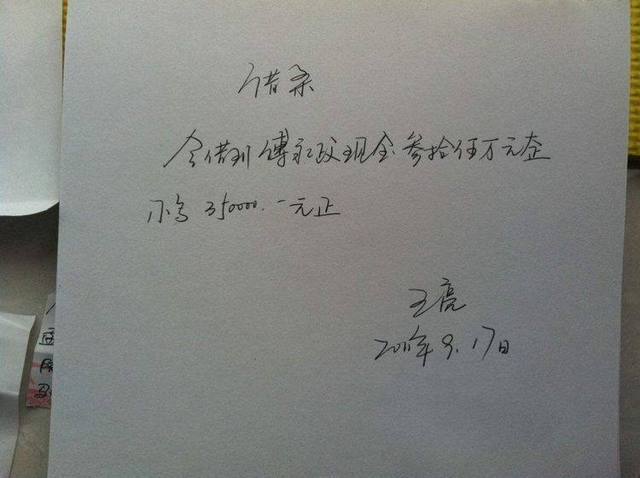 借条
今借到傅永政现金参拾伍万元整
小写350000.-元正
王亮
2011年9.17日